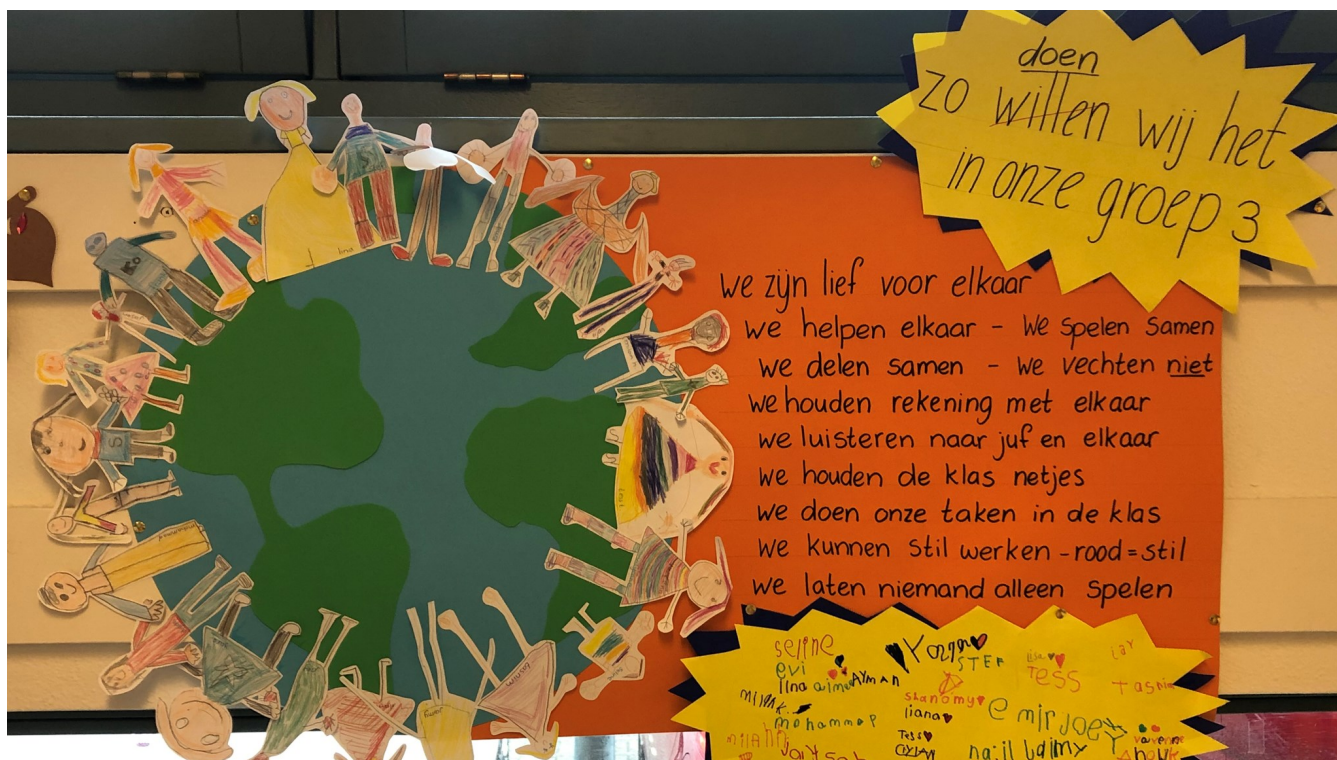 doen
zo willen wij het
in onze groep 3
we zijn lief voor elkaar
we helpen elkaar - We spelen samen
we delen samen - we vechten niet
we houden rekening met elkaar
we luisteren naar juf en elkaar
we houden de klas netjes
we doen onze taken in de klas
we kunnen stil werken - rood = stil
we laten niemand alleen spelen
seline
evi
lina AYMAN
STEF
Tess
shanomy
liana
emir joey
mohammed
Tess
najil